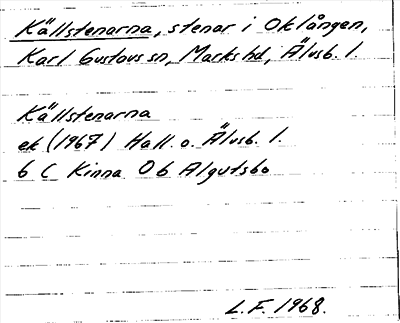 Källstenarna, stenar i Oklången,
Karl Gustavs sn, Marks hd, Älvsb. l.
Källstenarna
ek (1967) Hall. o. Älvsb. l.
6 C Kinna 0 b Algutsbo
L. F. 1968.